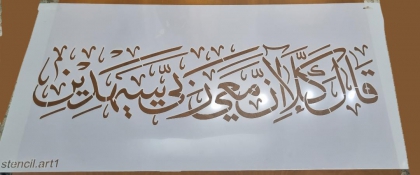 قال كلا إن معي ربي سيهدين
stencil.art1